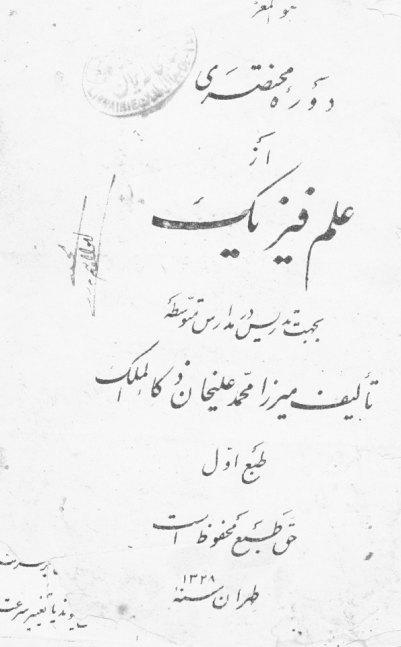 هو المعز
دورهٔ مختصری
از
علم فیزیک
بجهت تدریس در مدارس متوسطه
تألیف میرزا محمد علیخان ذکاءالملک
طبع اوّل
حقّ طبع محفوظ است
طهران سنهٔ ۱۳۲۸